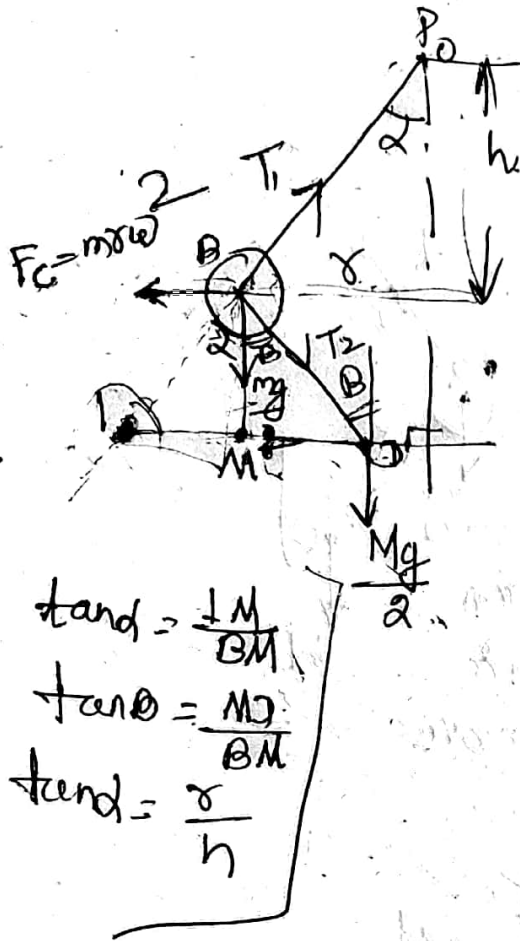 P O
α
h
T₁
F_C = mrω²
B
r
α B
T₂
B
mg
I
M
D
Mg
2
tanα = IM
BM
tanB = MD
BM
tanα = r
h